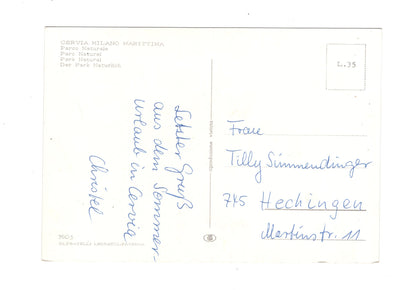 CERVIA MILANO MARITTIMA
Parco Naturale
Parc Naturel
Park Natural
Der Park Natürlich
L.35
Letzter Gruß
aus dem Sommer-
urlaub in Cervia
Christel
Frau
Tilly Simmendinger
745 Hechingen
Martinstr. 11